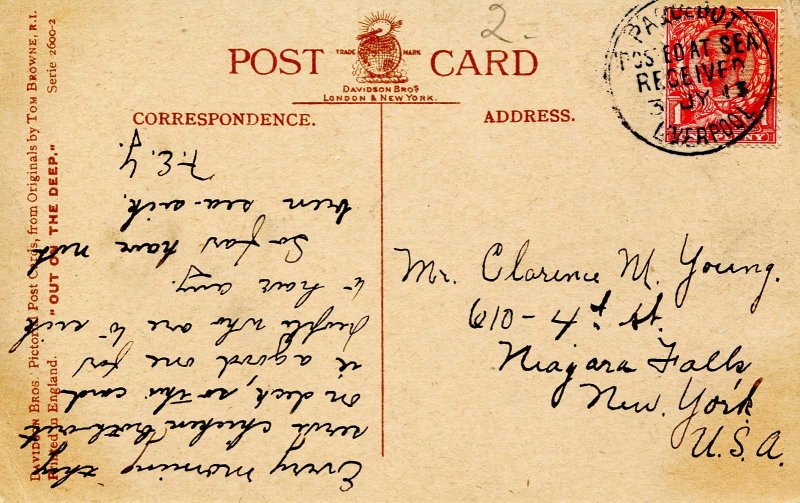 POST CARD
TRADE MARK
DAVIDSON BROS
LONDON & NEW YORK.
CORRESPONDENCE.
ADDRESS.
2-
PAQUEBOT
POSTED AT SEA
RECEIVED
3 JY 13
LIVERPOOL
1 PENNY 1
DAVIDSON BROS.' Pictorial Post Cards, from Originals by TOM BROWNE, R.I.
Printed in England. "OUT ON THE DEEP." Serie 2600-2
Every morning they
serve chicken broth out
on deck, so this card
is a good one for
people who are to sick
to have any.
So far have not
been sea-sick.
F.E.Y.
Mr. Clarence M. Young.
610-4th St.
Niagara Falls
New York
U.S.A.